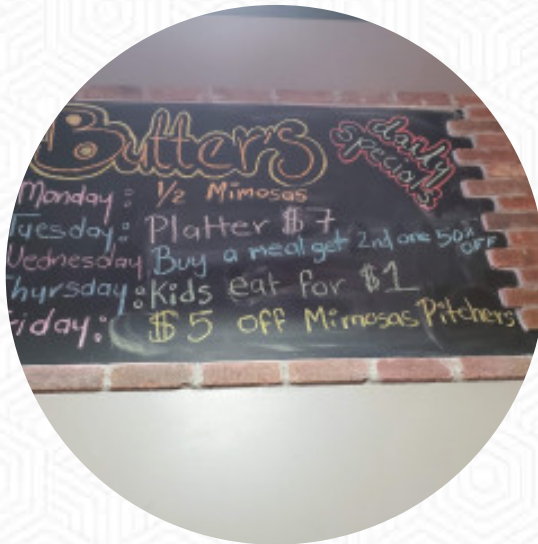 Butters daily specials
Monday: 1/2 Mimosas
Tuesday: Platter $7
Wednesday Buy a meal get 2nd one 50% OFF
Thursday: Kids eat for $1
Friday: $5 off Mimosas Pitchers